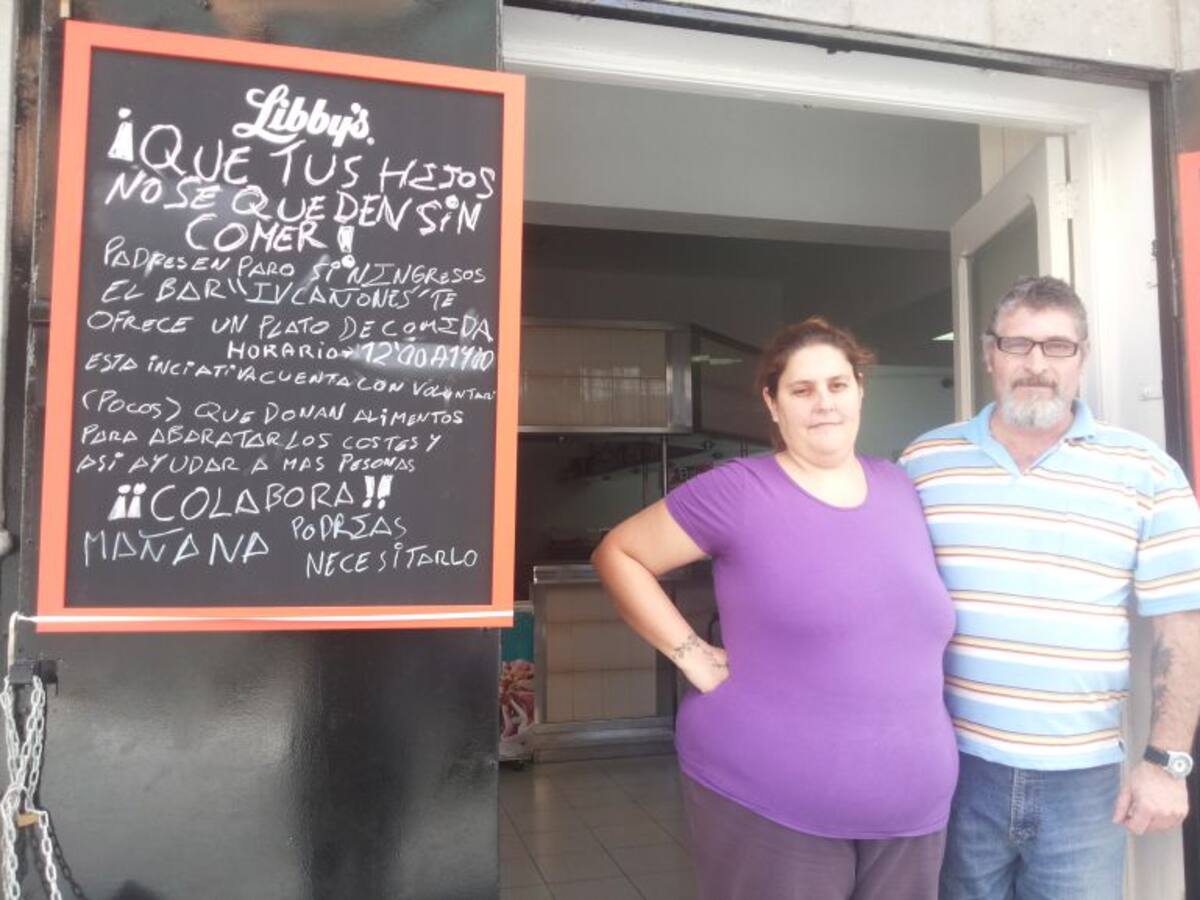 Libby's.
¡QUE TUS HIJOS
NO SE QUEDEN SIN
COMER!
PADRES EN PARO SIN INGRESOS
EL BAR "IV CAÑONES" TE
OFRECE UN PLATO DE COMIDA
HORARIO 12'00 A 14'00
ESTA INCIATIVA CUENTA CON VOLUNTARI
(POCOS) QUE DONAN ALIMENTOS
PARA ABARATAR LOS COSTES Y
ASI AYUDAR A MAS PESONAS
¡¡COLABORA!!
MAÑANA PODRIAS
NECESITARLO